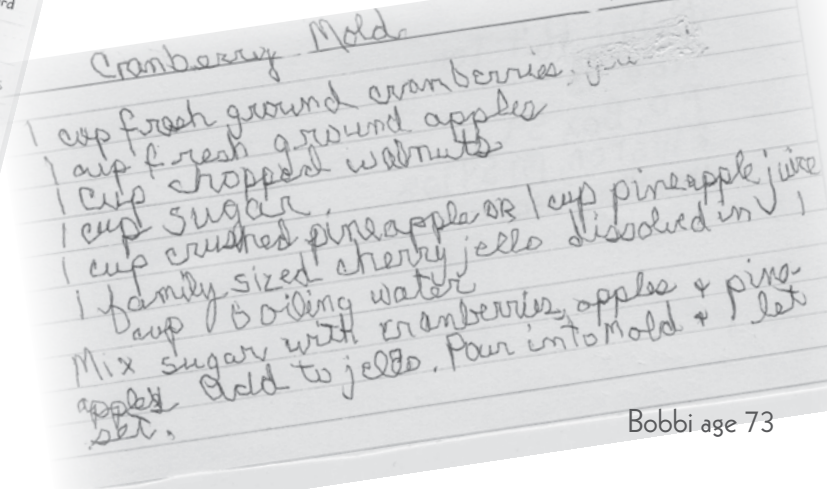 Cranberry Mold
1 cup fresh ground cranberries,
1 cup fresh ground apples
1 cup chopped walnuts
1 cup sugar
1 cup crushed pineapple OR 1 cup pineapple juice
1 family sized cherry jello dissolved in 1
cup boiling water
Mix sugar with cranberries, apples & pine-
apples Add to jello. Pour into Mold & let
set.
Bobbi age 73